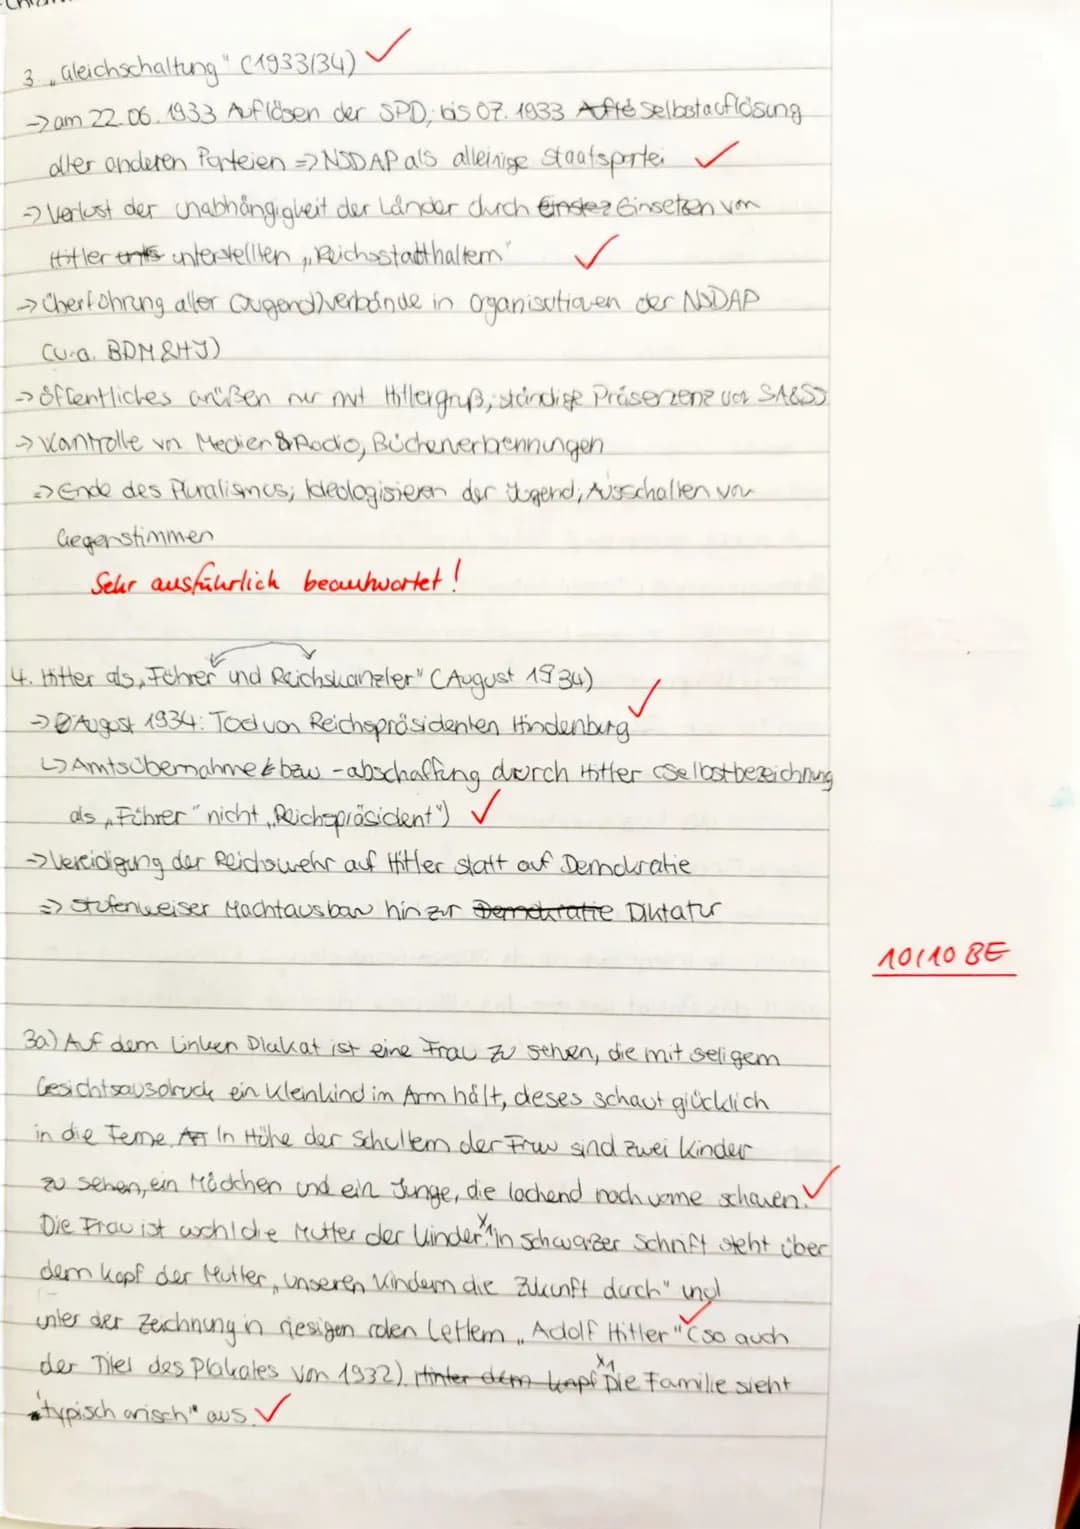 3. „Gleichschaltung" (1933/34)
-> am 22.06.1933 Auflösen der SPD, bis 07.1933 Selbstauflösung
aller anderen Parteien => NSDAP als alleinige Staatspartei
-> Verlust der Unabhängigkeit der Länder durch Einsetzen von
Hitler unterstellten „Reichsstatthaltern"
-> Überführung aller (Jugend)verbände in Organisationen der NSDAP
(u.a. BDM & HJ)
-> öffentliches Grüßen nur mit Hitlergruß, ständige Präsenzenz von SA&SS
-> Kontrolle von Medien & Radio, Bücherverbrennungen
=> Ende des Pluralismus, Ideologisieren der Jugend, Ausschalten von
Gegenstimmen
Sehr ausführlich beantwortet!
4. Hitler als „Führer und Reichskanzler" (August 1934)
-> August 1934: Tod von Reichspräsidenten Hindenburg
↳ Amtsübernahme bzw -abschaffung durch Hitler (Selbstbezeichnung
als „Führer" nicht „Reichspräsident")
-> Vereidigung der Reichswehr auf Hitler statt auf Demokratie
=> stufenweiser Machtausbau hin zur Demokratie Diktatur
10/10 BE
3a) Auf dem linken Plakat ist eine Frau zu sehen, die mit seligem
Gesichtsausdruck ein Kleinkind im Arm hält, dieses schaut glücklich
in die Ferne. In Höhe der Schultern der Frau sind zwei Kinder
zu sehen, ein Mädchen und ein Junge, die lachend nach vorne schauen.
Die Frau ist wohl die Mutter der Kinder. x1 In schwarzer Schrift steht über
dem Kopf der Mutter „unseren Kindern die Zukunft durch" und
unter der Zeichnung in riesigen roten Lettern „Adolf Hitler" (so auch
der Titel des Plakates von 1932). Hinter dem Kopf x1 Die Familie sieht
"typisch arisch" aus.